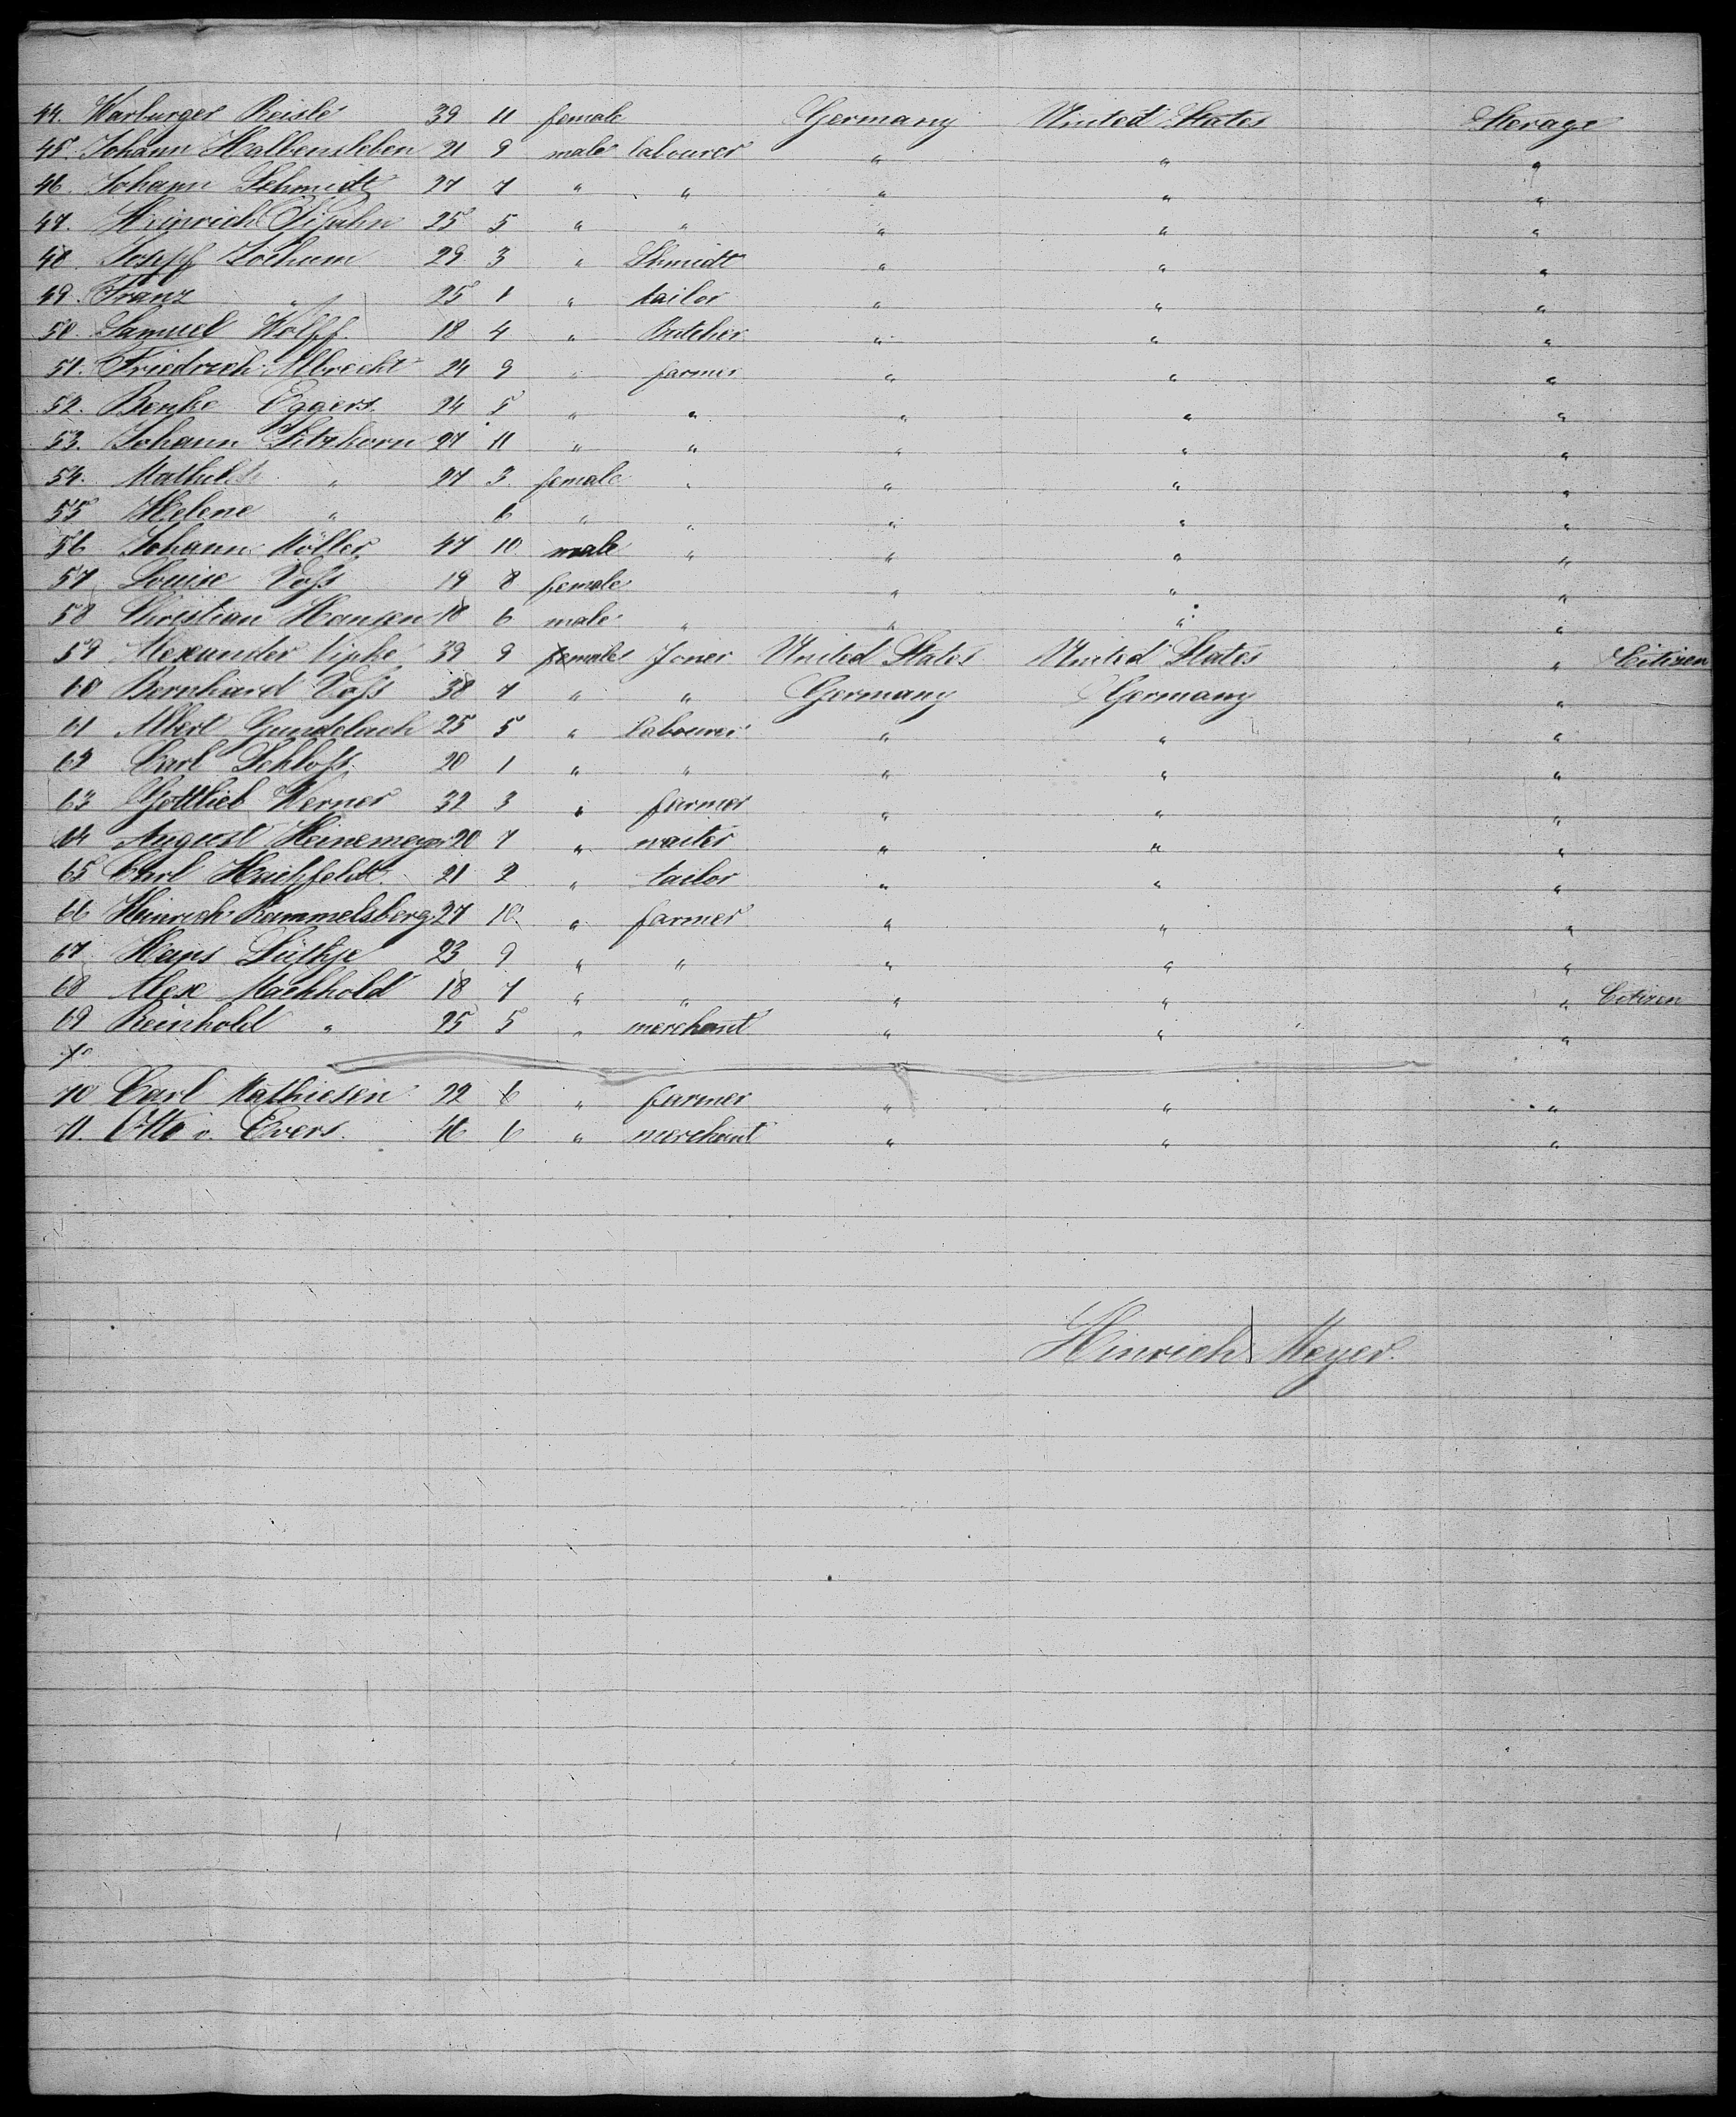 44. Warburger Reisle 39 11 female Germany United States Sterage
45. Johann Halbensleben 21 9 male labourer " " "
46. Johann Schmidt 27 7 " " " " "
47. Heinrich 25 5 " " " " "
48 Joseff Jochum 29 3 " Shmidt " " "
49. Franz " 25 1 " tailor " " "
50. Samuel Wolff. 18 4 " Butcher " " "
51. Friedrich Albrecht 24 9 " farmer " " "
52. Benke Eggers. 24 5 " " " " "
53. Johann Sitzkorn 27 11 " " " " "
54. Mathilde " 27 3. female " " " "
55 Helene " 6 " " " " "
56 Johann Möller 47 10 male " " " "
57 Louise Voſs 19 8 female " " "
58 Christian Hansen 18 6 male " " " "
59 Alexander 39 9 male Joner United States United States " Citizen
60 Bernhard Voſs 38 7 " " Germany Germany "
61 Albert Gundelach 25 5 " labourer " " "
62 Carl Schloſs. 20 1 " " " " "
63 Gottlieb Werner 32 3 " farmer " " "
64 August Heinemeyer 20 7 " waiter " " "
65 Carl Hachfeldt. 21 2 " tailor " " "
66 Heinrich Rammelsberg 27 10. " farmer " " "
67 Hans Lüthje 23 9 " " " " "
68 Alex Machhold 18 7 " " " " " Citizen
69 Reinhold " 25 5 " merchant " " "
70
70 Carl Mathiesen 22 6 " farmer " " "
71. Otto v. Evers. 46 6 " merchant " " "
Hinrich Meyer.